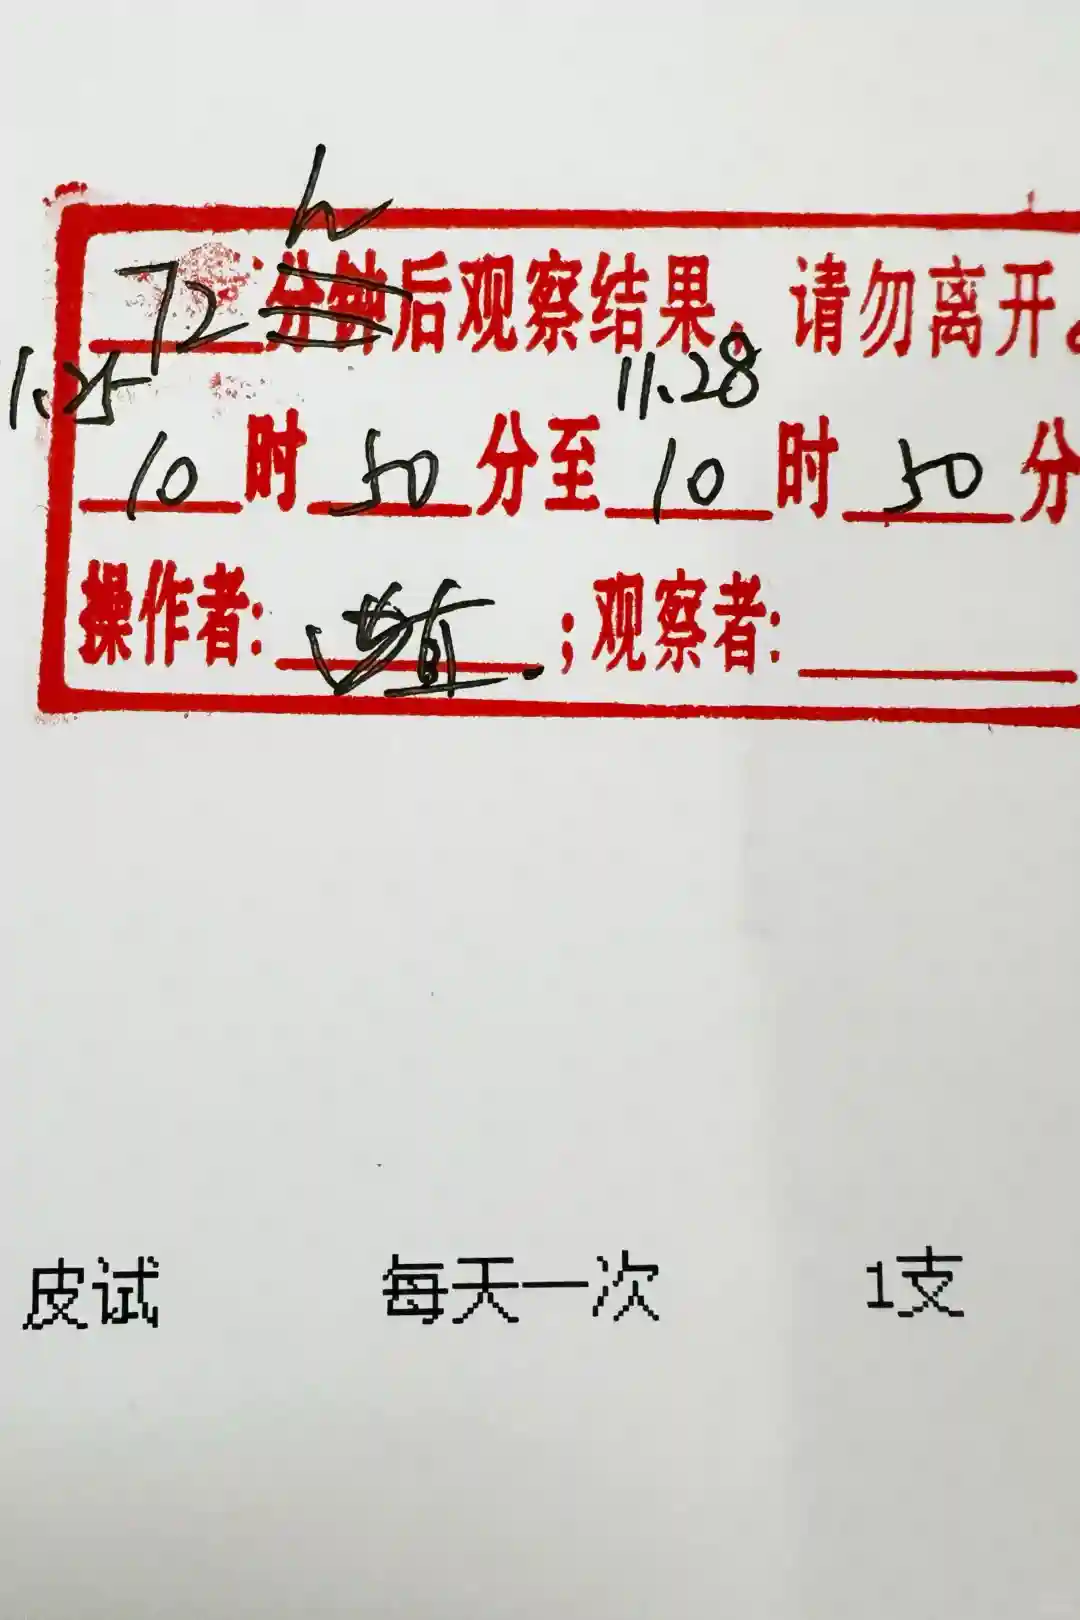 h
72 分钟后观察结果, 请勿离开。
1.25 11.28
10时50分至10时50分
操作者: ;观察者:
皮试 每天一次 1支